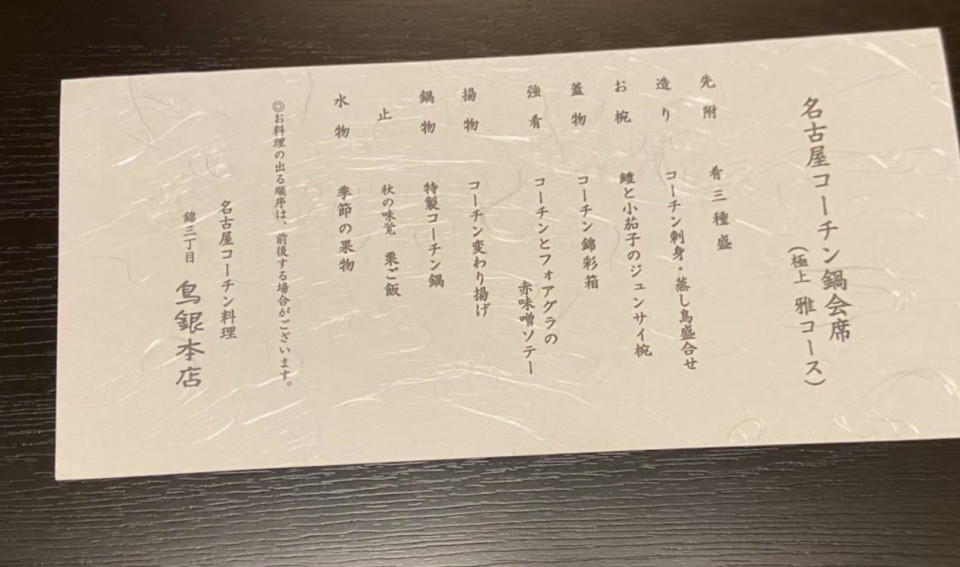 名古屋コーチン鍋会席
（極上 雅コース）
先附 肴三種盛
造り コーチン刺身・蒸し鳥盛合せ
お椀 鱧と小茄子のジュンサイ椀
蓋物 コーチン錦彩箱
強肴 コーチンとフォアグラの
赤味噌ソテー
揚物 コーチン変わり揚げ
鍋物 特製コーチン鍋
止 秋の味覚 栗ご飯
水物 季節の果物
◎お料理の出る順序は、前後する場合がございます。
名古屋コーチン料理
錦三丁目 鳥銀本店